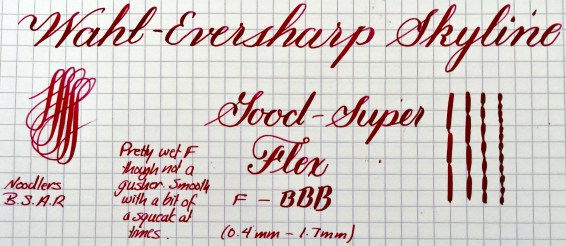 Wahl-Eversharp Skyline
Good-Super
Flex
F - BBB
(0.4mm - 1.7mm)
Pretty wet F
though not a
gusher. Smooth
with a bit of
a squeak at
times.
Noodlers
B.S.A.R